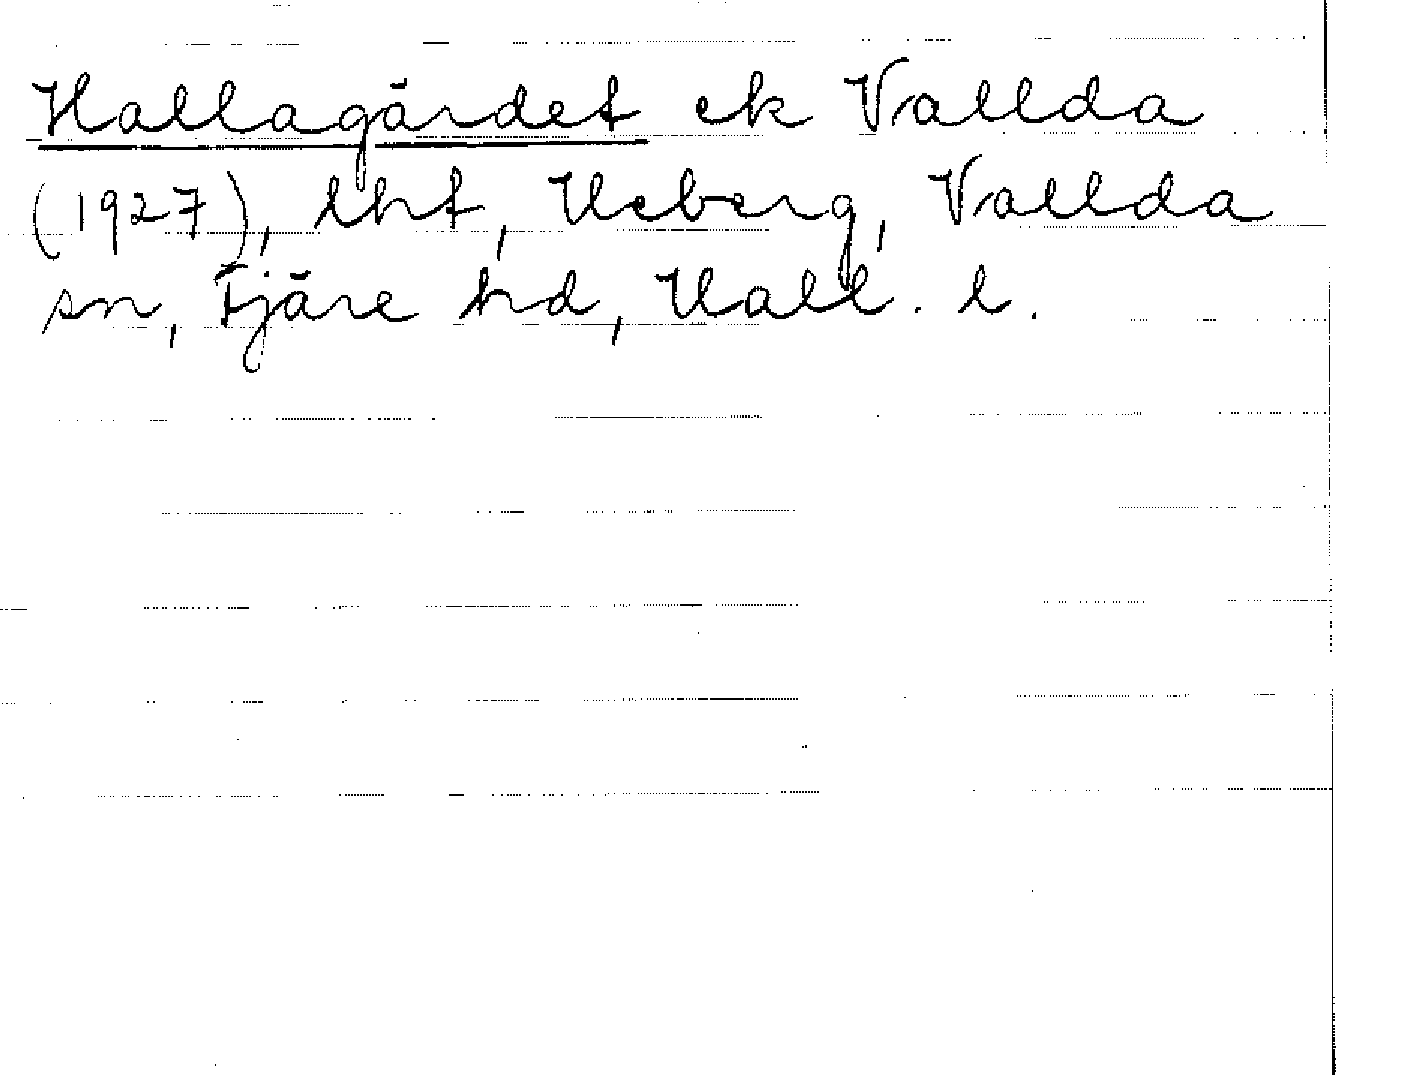 Hallagärdet ek Vallda
(1927), lht, Heberg, Vallda
sn, Fjäre hd, Hall. l.